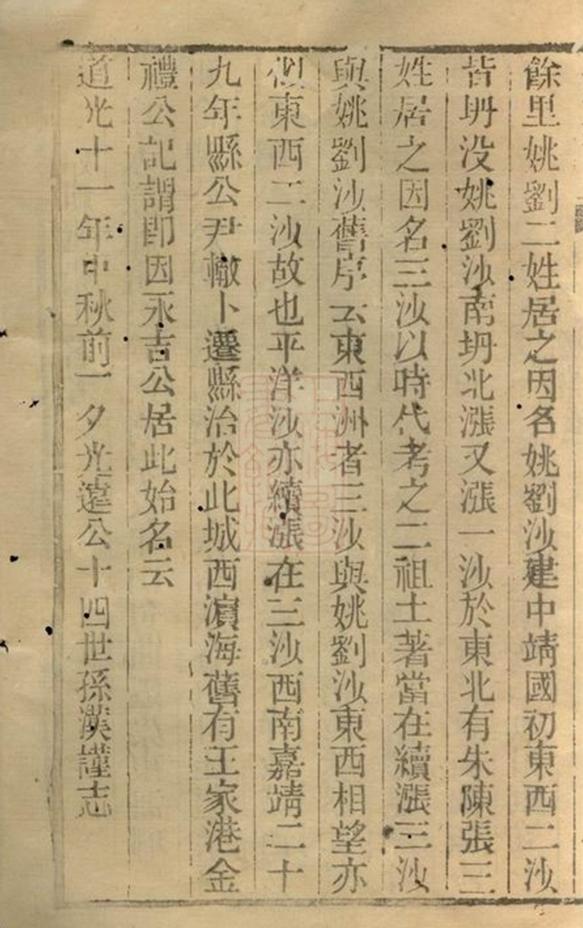 餘里姚劉二姓居之因名姚劉沙建中靖國初東西二沙
皆坍没姚劉沙南坍北漲又漲一沙於東北有朱陳張三
姓居之因名三沙以時代考之二祖土著當在續漲三沙
與姚劉沙舊序云東西洲者三沙與姚劉沙東西相望亦
似東西二沙故也平洋沙亦續漲在三沙西南嘉靖二十
九年縣公尹轍卜遷縣治於此城西濵海舊有王家港金
禮公記謂即因永吉公居此始名云
道光十一年中秋前一夕光遠公十四世孫漢謹志